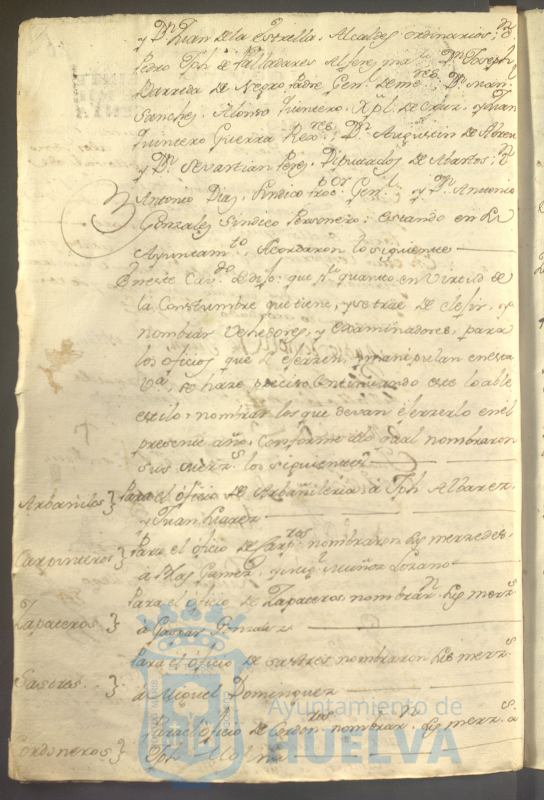 y Dn Juan de la Estrella, Alcaldes ordinarios; Dn
Pedro Jph de Valladares Alferez ma.r Dn Joseph
Barreda de Negro, Padre Genl de me.res Dn Juan
Sanchez, Alonso Quintero, Xpl de Cruz, y Juan
Quintero Guerra Rex.res; Dn Augustin de
y Dn Sevastian Perez, Diputados de Abastos; Dn
Antonio Diaz, Sindico Proc.or Genl y Dn Antonio
Gonzalez Sindico Personero: estando en su
Ayuntam.to, Acordaron lo siguiente
En este Cav.do se dijo: que p.r quanto en virtud de
la Constumbre que tiene, y se trae de elejir, y
nombrar Vehedores, y Examinadores, para
los oficios que se ejerzen, y manipulan en esta
Va, se haze preciso Continuando este loable
estilo, nombrar los que devan ejerzerlo en el
presente año, Conforme a lo qual nombraron
sus merz.s los siguientes
Arbañiles } Para el oficio de Arbañileria, a Jph Albarez,
y Juan Suarez
Carpinteros } Para el oficio de Carp.ros nombraron sus merzedes,
a Blas Gomez, y Muñoz Lozano
Zapateros } Para el oficio de Zapateros, nombrarn sus merz.s
a Gaspar Gonzalez
Para el oficio de sastres nombraron sus merz.s
Sastres } a Miguel Dominguez
Para el oficio de Cordon.ros nombrar.n sus merz.s a
Cordoneros } Jph
Ayuntamiento de
HUELVA